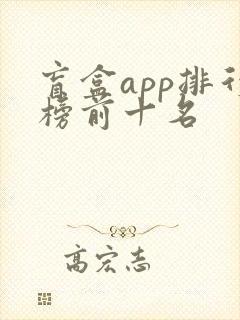 盲盒app排行
榜前十名
高宏志